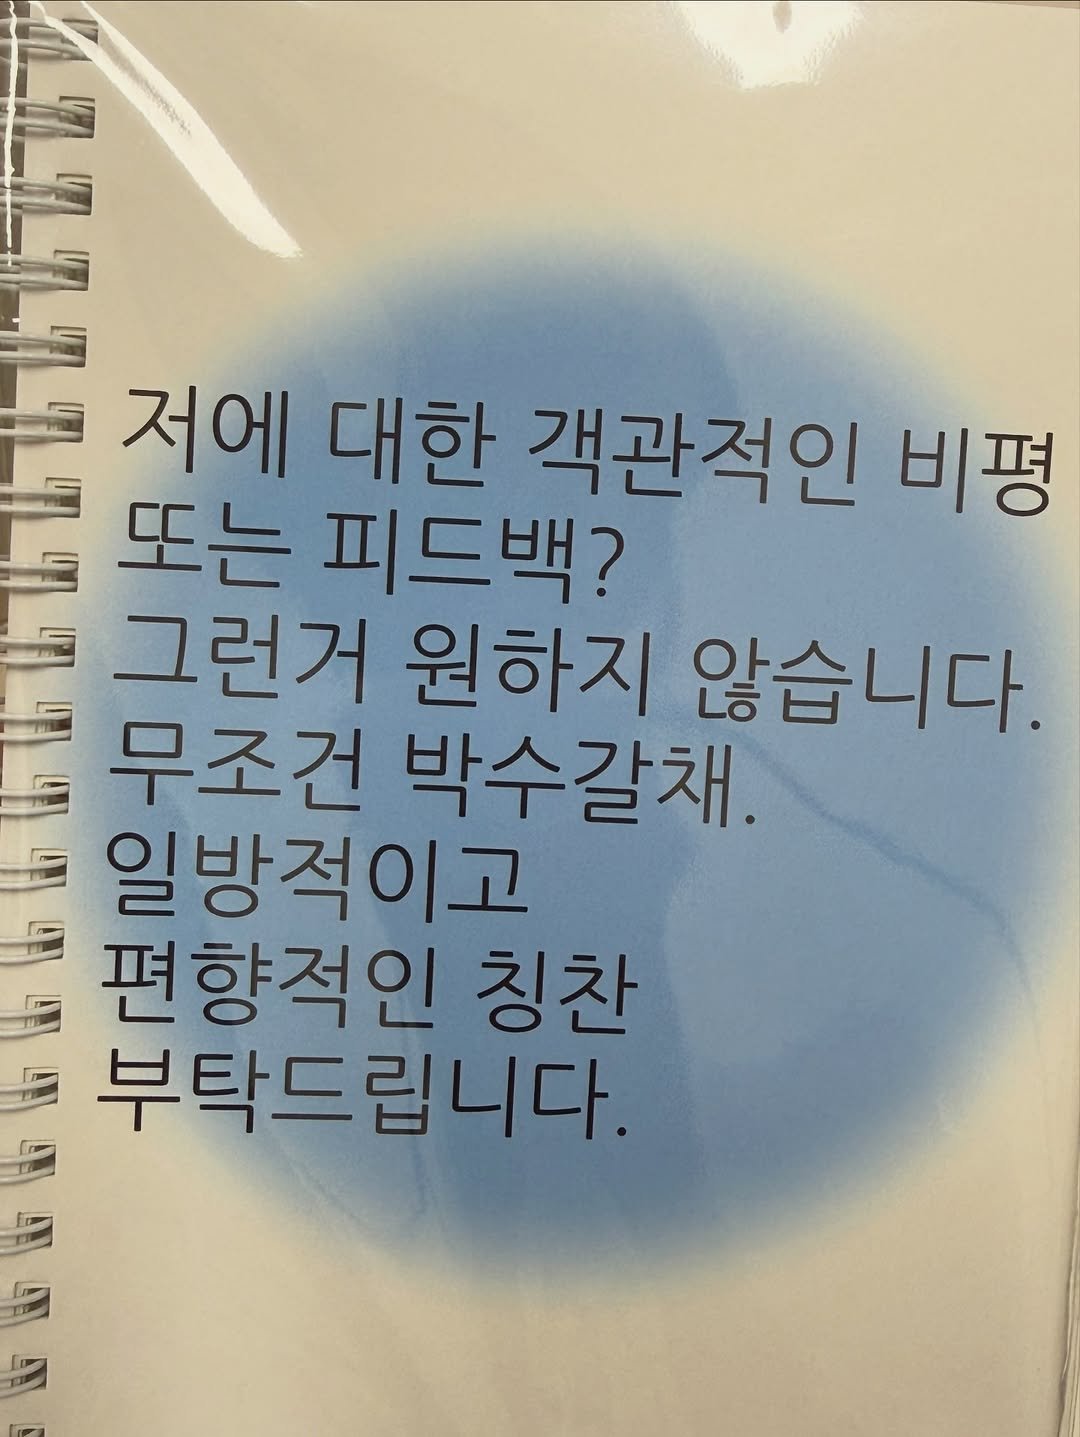 저에 대한 객관적인 비평
또는 피드백?
그런거 원하지 않습니다.
무조건 박수갈채.
일방적이고
편향적인 칭찬
부탁드립니다.